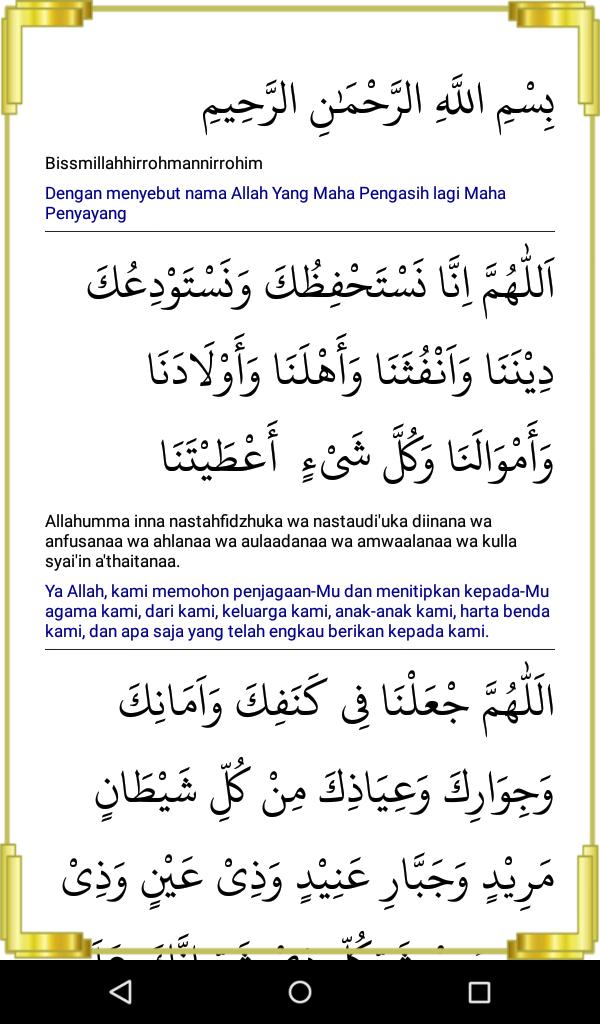 بِسْمِ اللَّهِ الرَّحْمَٰنِ الرَّحِيمِ
Bissmillahhirrohmannirrohim
Dengan menyebut nama Allah Yang Maha Pengasih lagi Maha
Penyayang
اَللّٰهُمَّ اِنَّا نَسْتَحْفِظُكَ وَنَسْتَوْدِعُكَ
دِيْنَنَا وَاَنْفُثَنَا وَأَهْلَنَا وَأَوْلَادَنَا
وَأَمْوَالَنَا وَكُلَّ شَىْءٍ أَعْطَيْتَنَا
Allahumma inna nastahfidzhuka wa nastaudi'uka diinana wa
anfusanaa wa ahlanaa wa aulaadanaa wa amwaalanaa wa kulla
syai'in a'thaitanaa.
Ya Allah, kami memohon penjagaan-Mu dan menitipkan kepada-Mu
agama kami, dari kami, keluarga kami, anak-anak kami, harta benda
kami, dan apa saja yang telah engkau berikan kepada kami.
الَلّٰهُمَّ جْعَلْنَا فِى كَنَفِكَ وَاَمَانِكَ
وَجِوَارِكَ وَعِيَاذِكَ مِنْ كُلِّ شَيْطَانٍ
مَرِيْدٍ وَجَبَّارِ عَنِيْدٍ وَذِىْ عَيْنٍ وَذِىْ